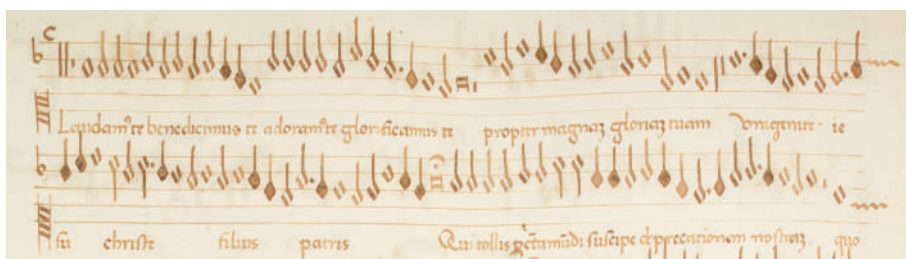 Laudam᷒te benedicimus te adoram᷒te glorificamus te propter magnaꝫ gloriaꝫ tuam Vnigenite ie
su christe filius patris Qui tollis suscipe deprecationem nostraꝫ quo